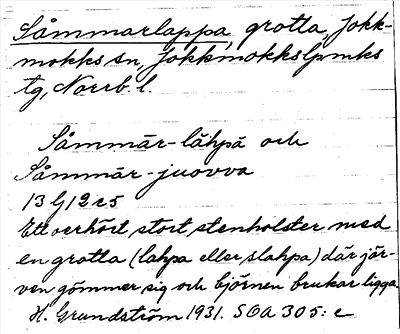 Såmmarlappa, grotta, Jokk-
mokks sn, Jokkmokks lpmks
tg, Norrb. l.
Såmmār-låhpå och
Såmmār-juovva
13 G 12 e 5
Ett oerhört stort stenholster med
en grotta (lahpa eller slahpa) där jär-
ven gömmer sig och björnen brukar ligga.
H. Grundström 1931. SOA 305: c